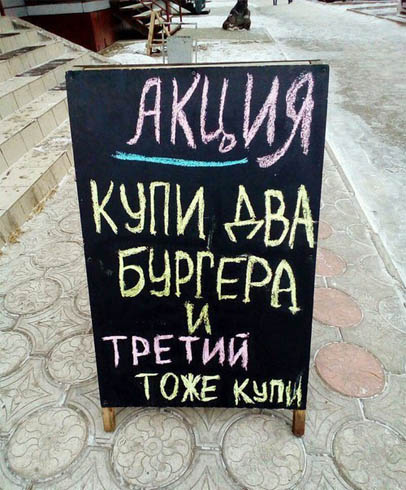 АКЦИЯ
КУПИ ДВА
БУРГЕРА
И
ТРЕТИЙ
ТОЖЕ КУПИ